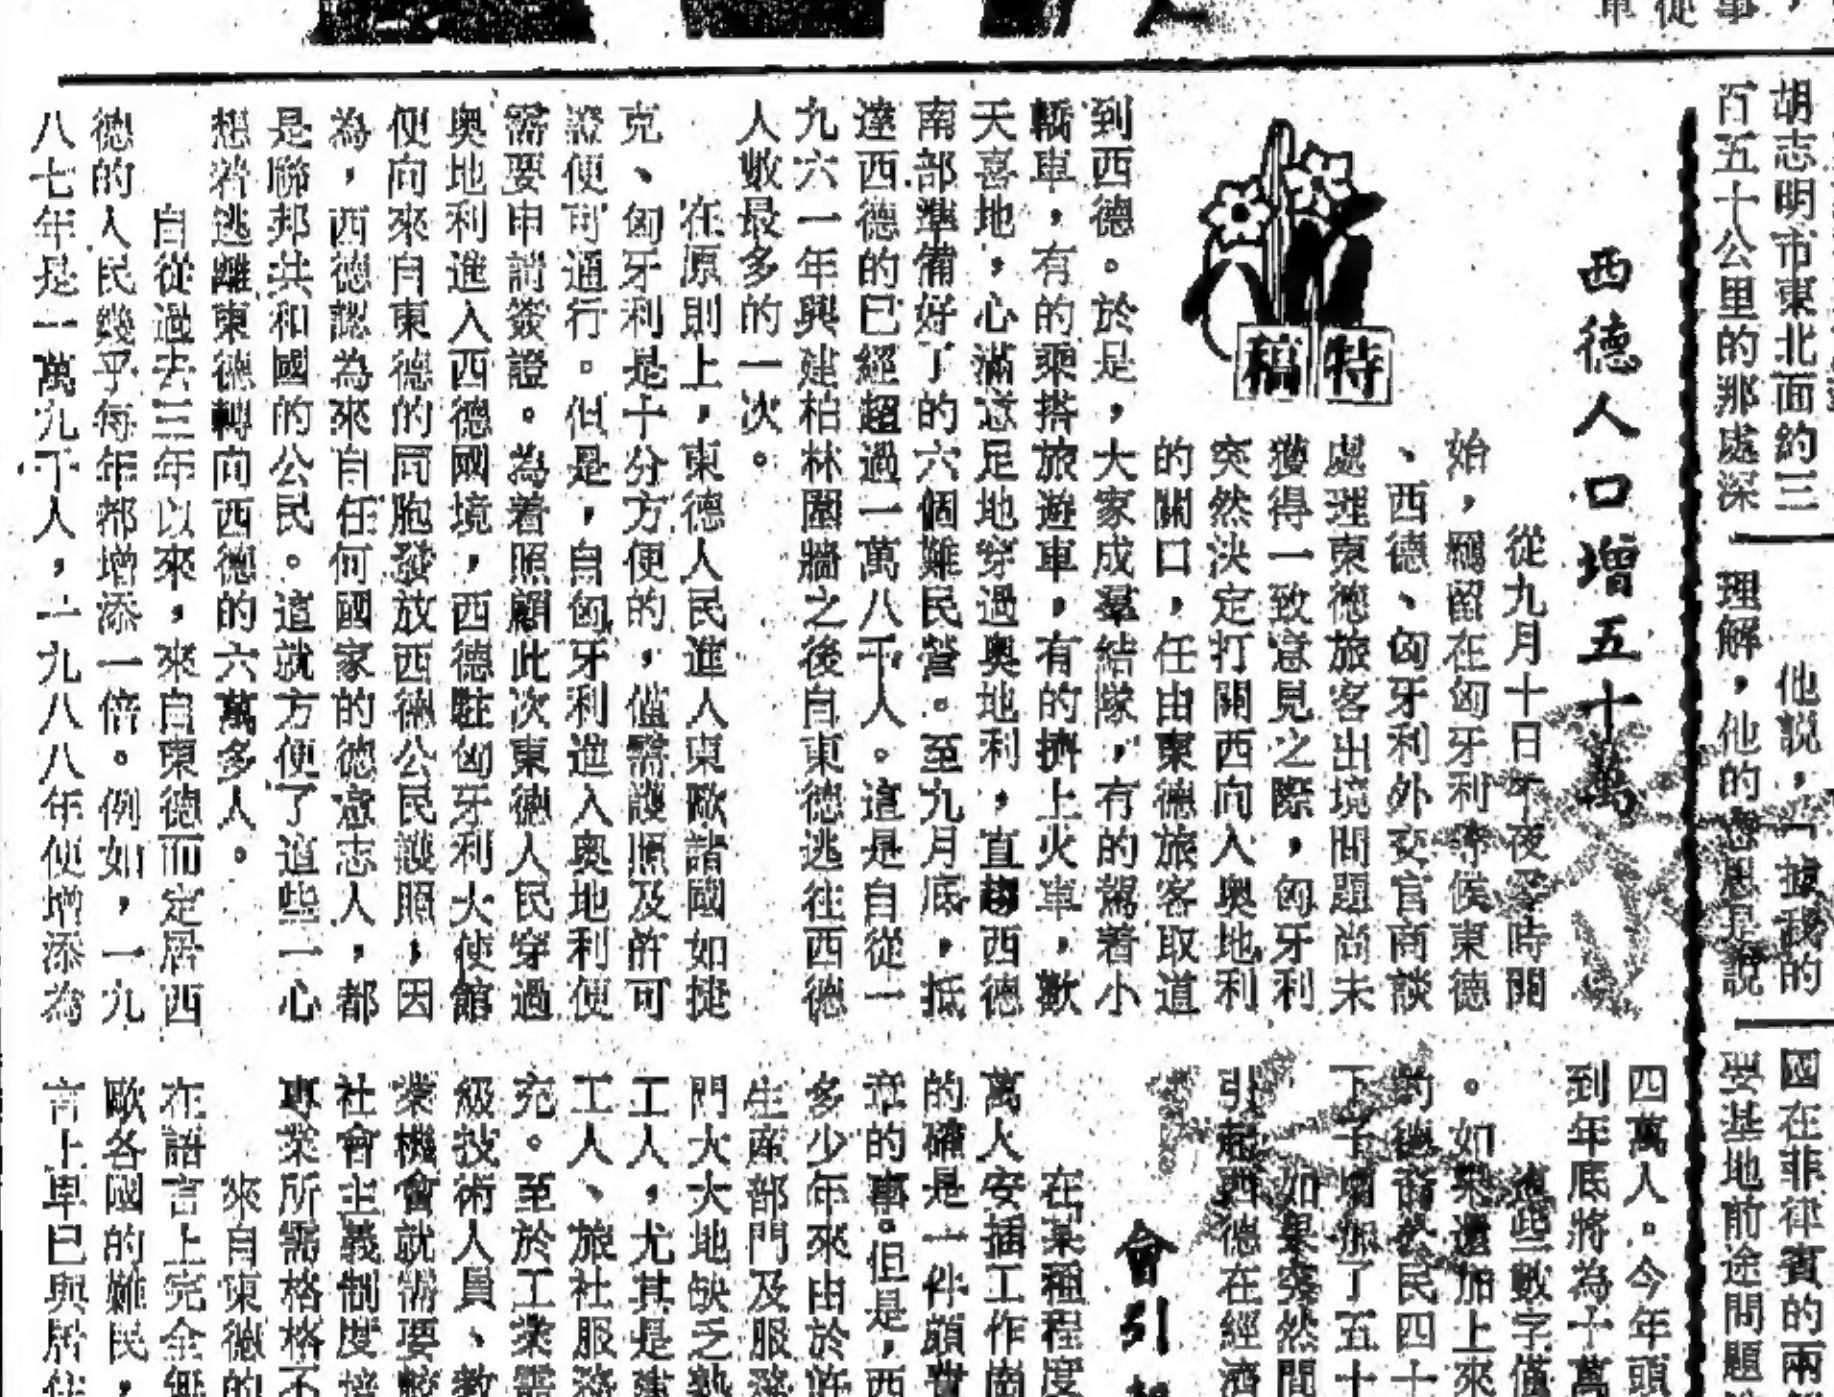 事，
從
軍
胡志明市東北面約三
百五十公里的那處深
他説，「據我的
理解，他的意思是説
國在菲律賓的兩
要基地前途問題
西德人口增五十萬
特稿
從九月十日午夜零時開
始，羈留在匈牙利等候東德
、西德、匈牙利外交官商談
處理東德旅客出境問題尚未
獲得一致意見之際，匈牙利
突然決定打開西向入奧地利
的關口，任由東德旅客取道
到西德。於是，大家成羣結隊，有的駕着小
轎車，有的乘搭旅遊車，有的擠上火車，歡
天喜地，心滿意足地穿過奧地利，直趨西德
南部準備好了的六個難民營。至九月底，抵
達西德的已經超過一萬八千人。這是自從一
九六一年興建柏林圍牆之後自東德逃往西德
人數最多的一次。
在原則上，東德人民進入東歐諸國如捷
克、匈牙利是十分方便的，僅需護照及許可
證便可通行。但是，自匈牙利進入奧地利便
需要申請簽證。為着照顧此次東德人民穿過
奧地利進入西德國境，西德駐匈牙利大使館
便向來自東德的同胞發放西德公民護照，因
為，西德認為來自任何國家的德意志人，都
是聯邦共和國的公民。這就方便了這些一心
想着逃離東德轉向西德的六萬多人。
自從過去三年以來，來自東德而定居西
德的人民幾乎每年都增添一倍。例如，一九
八七年是一萬九千人，一九八八年便增添為
四萬人。今年頭
到年底將為十萬
這些數字僅
。如果還加上來
的德裔公民四十
下子增加了五十
如果突然間
引起西德在經濟
會引
在某種程度
萬人安插工作崗
的確是一件頗費
章的事。但是，西
多少年來由於許
生產部門及服務
門大大地缺乏熟
工人，尤其是建
工人、旅社服務
充。至於工業需
級技術人員、教
業機會就需要較
社會主義制度培
專業所需格格不
來自東德的
在語言上完全無
歐各國的難民，
言上早已與居住